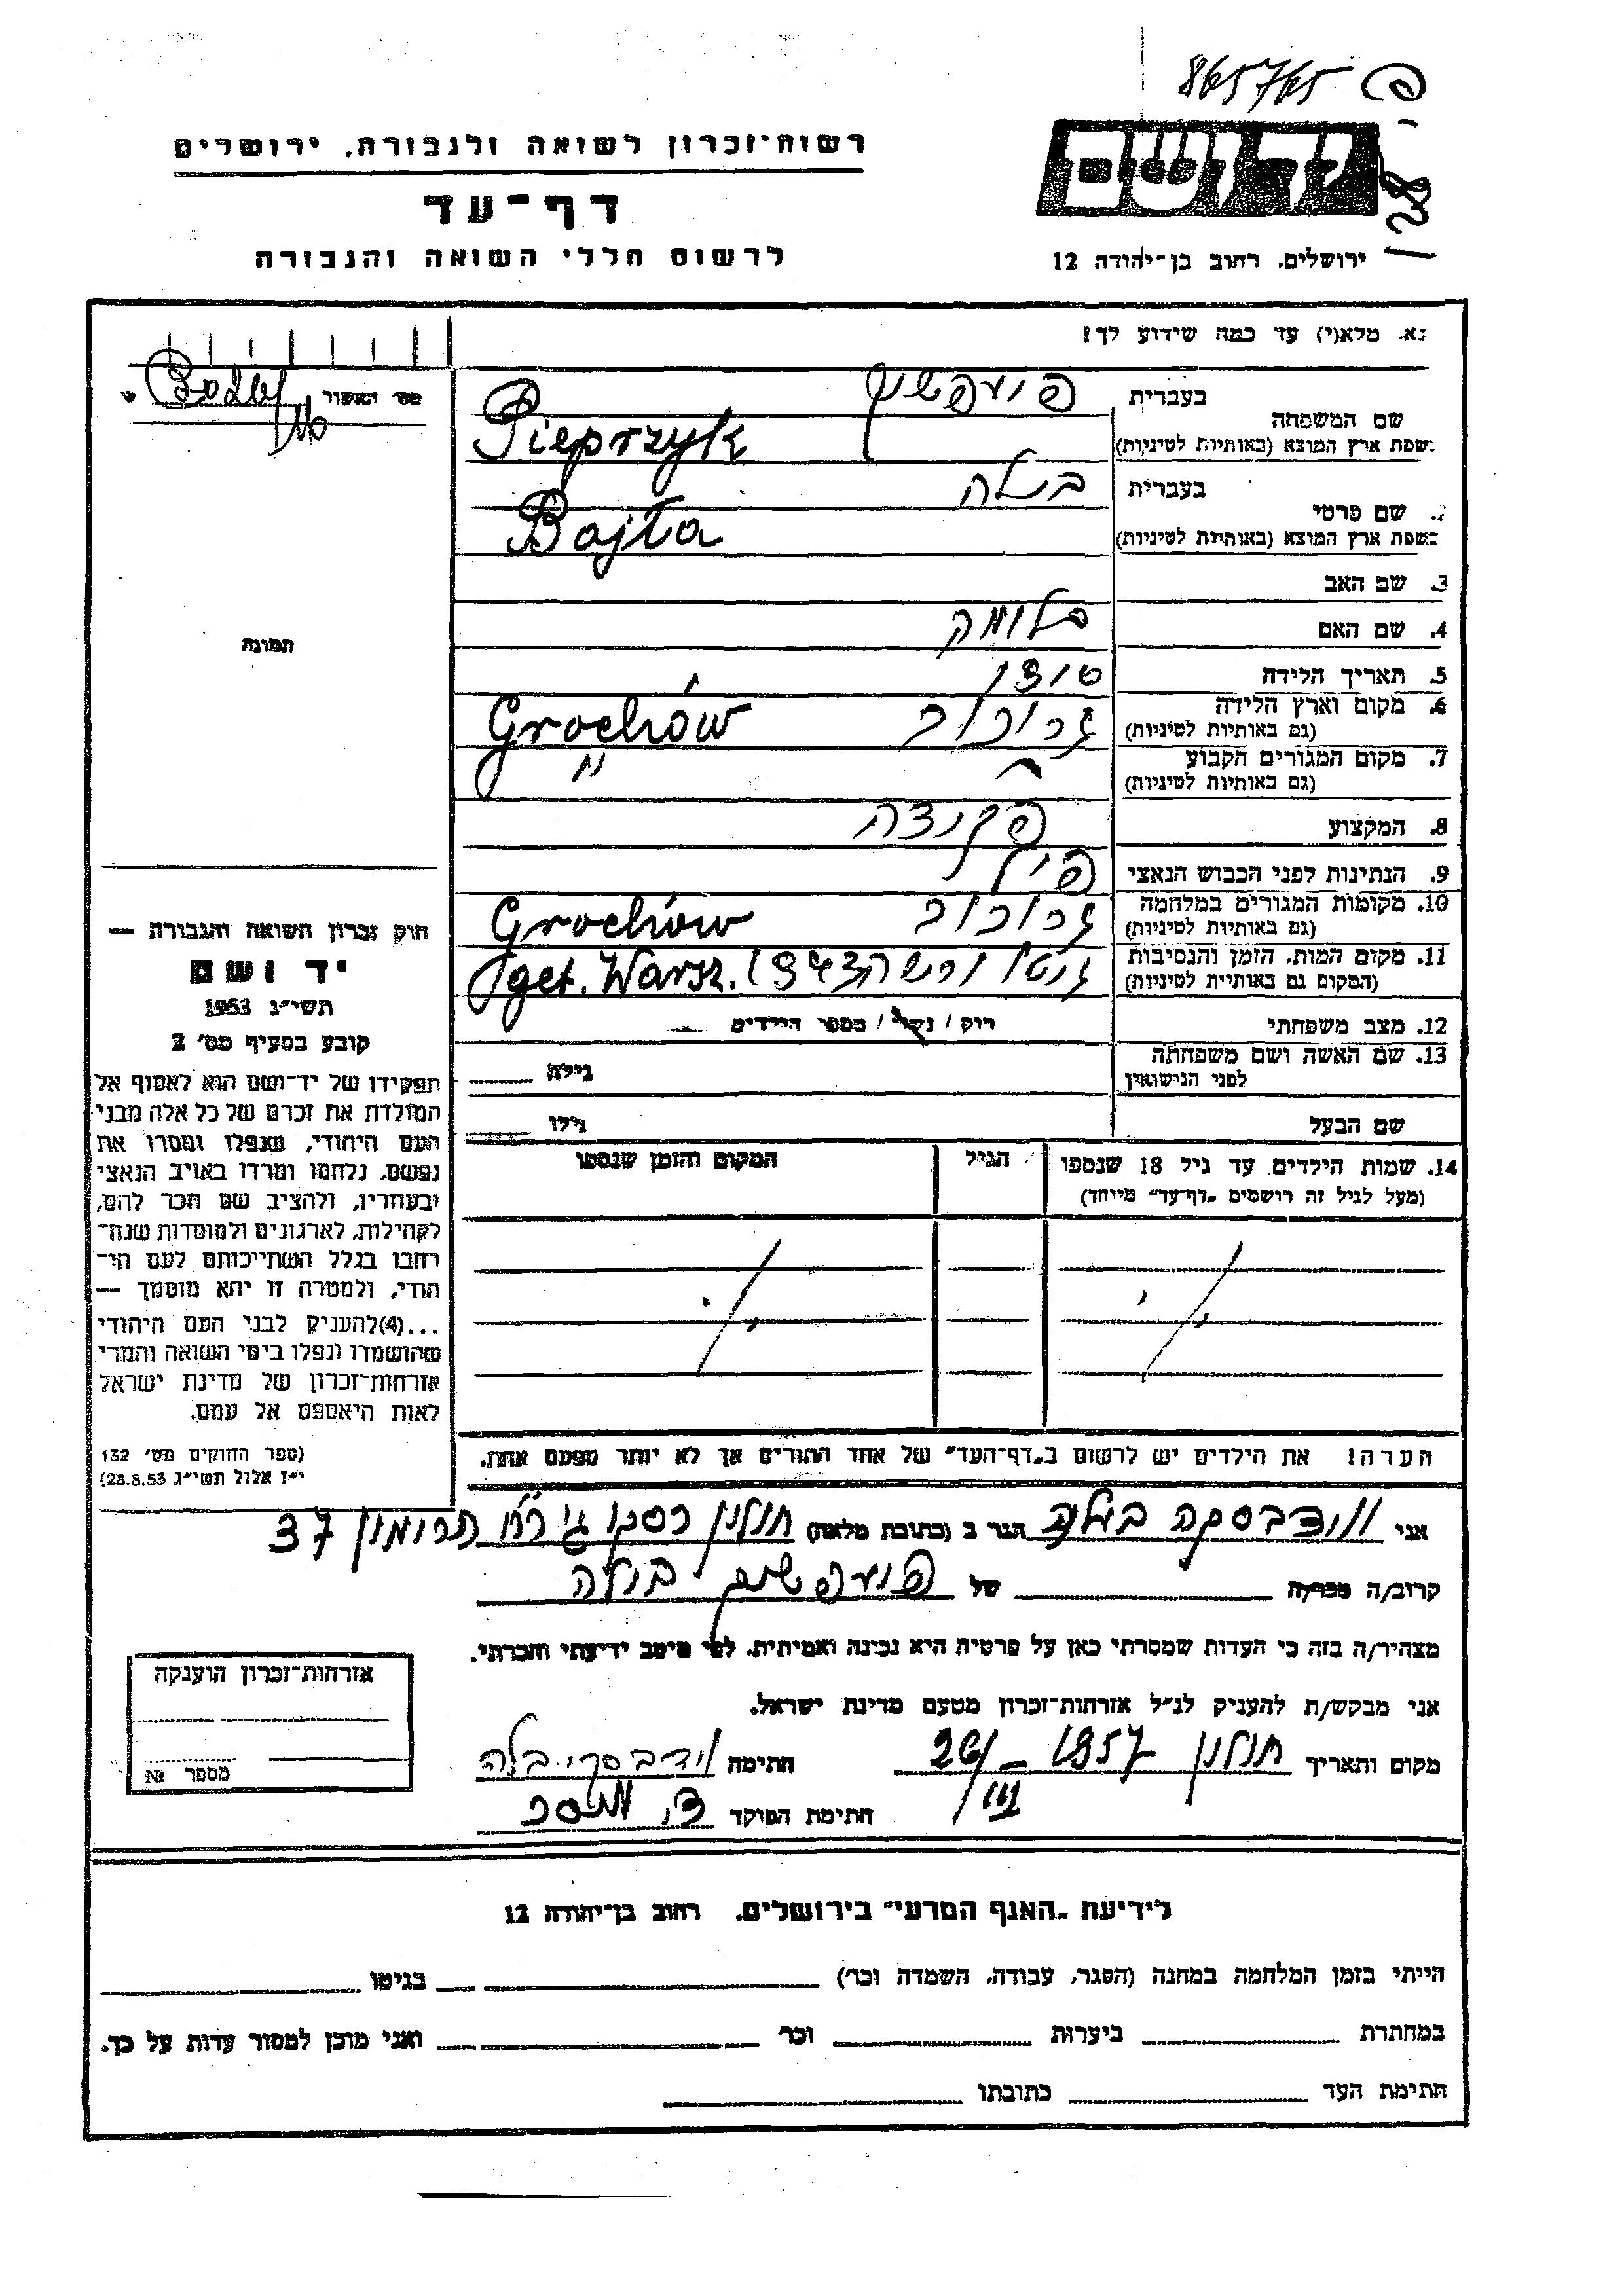 865765
רשות-זכרון לשואה ולגבורה, ירושלים
דף-עד
לרשום חללי השואה והגבורה
יד ושם
ירושלים, רחוב בן-יהודה 12
א. מלא(י) עד כמה שידוע לך!
מס' האשור
שם המשפחה
בעברית
בשפת ארץ המוצא (באותיות לטיניות) Pieprzyk
2. שם פרטי
בעברית
בשפת ארץ המוצא (באותיות לטיניות) Bajta
3. שם האב
4. שם האם
5. תאריך הלידה
6. מקום וארץ הלידה
(גם באותיות לטיניות) גרוכוב Grochów
7. מקום המגורים הקבוע
(גם באותיות לטיניות) "
8. המקצוע
9. הנתינות לפני הכבוש הנאצי
10. מקומות המגורים במלחמה
(גם באותיות לטיניות) גרוכוב Grochów
11. מקום המות, הזמן והנסיבות
(המקום גם באותיות לטיניות) גטו ורשה 1943 get. Warsz.
12. מצב משפחתי רווק / נשוי / מספר הילדים
13. שם האשה ושם משפחתה
לפני הנישואין גילה
שם הבעל גילו
14. שמות הילדים עד גיל 18 שנספו הגיל המקום והזמן שנספו
(מעל לגיל זה רושמים "דף-עד" מייחד)
הערה! את הילדים יש לרשום ב"דף-העד" של אחד ההורים אך לא יותר מפעם אחת.
תמונה
חוק זכרון השואה והגבורה —
יד ושם
תשי"ג 1953
קובע בסעיף מס' 2
תפקידו של יד-ושם הוא לאסוף אל
המולדת את זכרם של כל אלה מבני
העם היהודי, שנפלו ומסרו את
נפשם, נלחמו ומרדו באויב הנאצי
ובעוזריו, ולהציב שם וזכר להם,
לקהילות, לארגונים ולמוסדות שנח-
רבו בגלל השתייכותם לעם הי-
הודי, ולמטרה זו יהא מוסמך —
...(4)להעניק לבני העם היהודי
שהושמדו ונפלו בימי השואה והמרי
אזרחות-זכרון של מדינת ישראל
לאות היאספם אל עמם.
(ספר החוקים מס' 132
י"ז אלול תשי"ג 28.8.53)
אני הגר ב (כתובת מלאה) חולון 37
קרוב/ה מכר/ה של
מצהיר/ה בזה כי העדות שמסרתי כאן על פרטיה היא נכונה ואמיתית, לפי מיטב ידיעתי והכרתי.
אני מבקש/ת להעניק לנ"ל אזרחות-זכרון מטעם מדינת ישראל.
מקום ותאריך חולון 1957 26/III חתימה
חתימת הפוקד
אזרחות-זכרון הוענקה
מספר №
לידיעת "האגף המדעי" בירושלים, רחוב בן-יהודה 12
הייתי בזמן המלחמה במחנה (הסגר, עבודה, השמדה וכו') בגיטו
במחתרת ביערות וכו' ואני מוכן למסור עדות על כך.
חתימת העד כתובתו